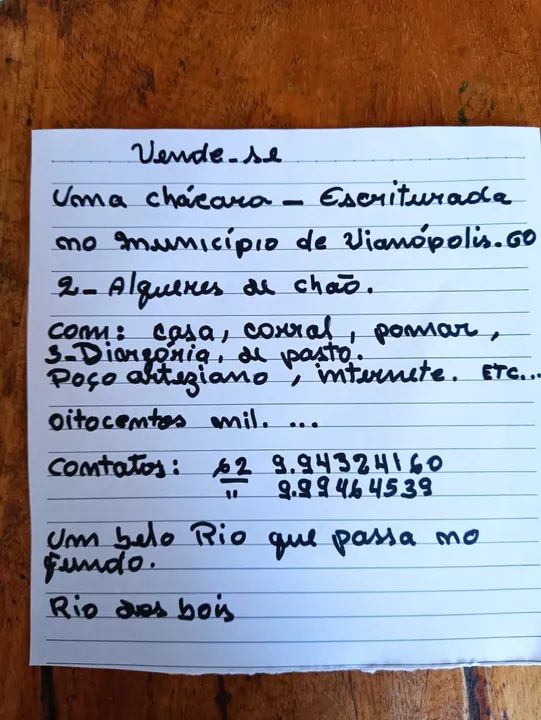 Vende-se
Uma chácara - Escriturada
no município de Vianópolis-GO
2- Alqueres de chão.
Com: casa, corral, pomar,
3-Diorgória, de pasto.
Poço arteziano, internete. ETC...
oitocentos mil. ...
Contatos: 62 9.94324160
" 9.99464539
Um belo Rio que passa no
fundo.
Rio dos bois